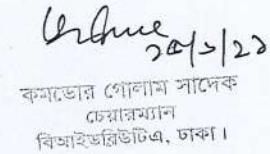 ২৫/১/২১
কমডোর গোলাম সাদেক
চেয়ারম্যান
বিআইডব্লিউটিএ, ঢাকা।